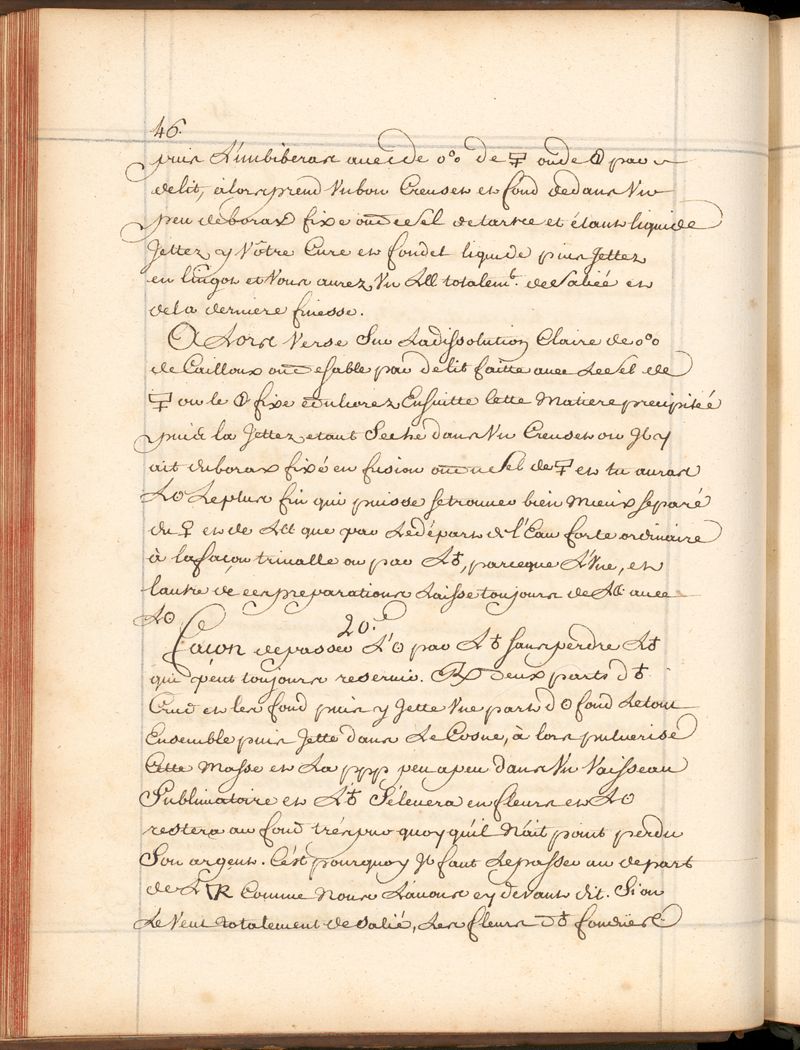 46.
puis L'imbiberas avec de o°o de 🜿 ou de 🜕 par
delit, alors prend Vn bon Creuset et fond dedans Vn
peu de borax fixe ou ce sel de tartre et étant liquide
Jettez y Vôtre Cure et fondet liquide puis Jettez
en lingot et Vous aurez Vn totalemt. de Saliée et
de la derniere finesse.
Alors Verse Sur La dissolution Claire de o°o
de Cailloux ou de sable par delit faitte avec Le sel de
🜿 ou le 🜕 fixe Ensuitte Cette Matiere precipitée
puis la Jettez etant Seche dans Vn Creuset ou Jl y
ait du borax fixé en fusion ou ce sel de 🜿 et tu auras
L☉ Le plus fin qui puisse se trouver bien Mieux separé
du ♀ et de que par Le départ de l'Eau forte ordinaire
à la façon trivalle ou par L♁, parceque L'Vne, et
lautre de ces preparations Laisse toujours de avec
L☉
20.e
Façon de passer L'☉ par L♁ sans perdre L♁
qui peut toujours reservir. ℞ deux parts d♁
Crud et les fond puis y Jette Vne part d☉ fond Le tout
Ensemble puis Jette dans Le Cosne, à lors pulverise
Cette Masse et La ppp peu a peu dans Vn Vaisseau
Sublimatoire et L♁ S'élevera en fleurs et L☉
restera au fond trés pur quoy qu'il N'ait point perdu
Son argent. C'est pourquoy Jl faut Le passer au depart
de L'🜆 Comme Nous L'avons cy devant dit. Si on
Le Veut totalement de salié, Les fleurs d♁ fondües